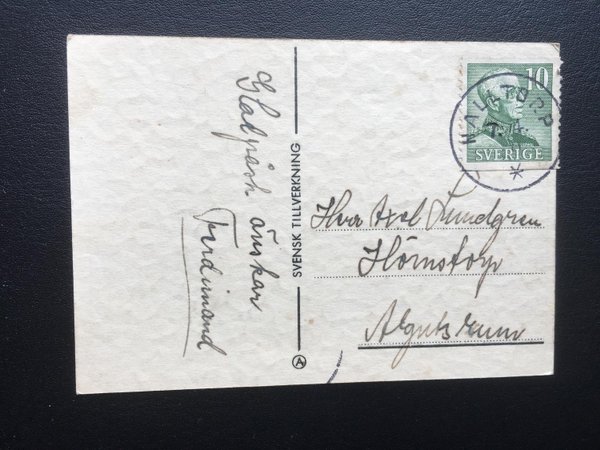 Glad påsk
önskar
Ferdinand
SVENSK TILLVERKNING
A
10
SVERIGE
Herr Axel Lundgren
Hörnstorp
Algutsrum